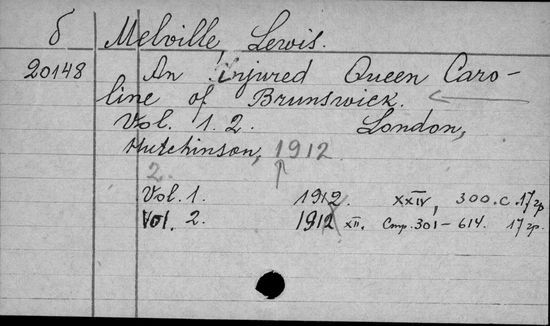 б Melville, Lewis.
20148 An Injured Queen Caro-
line of Brunswick.
Vol. 1. 2. London,
Hutchinson, 1912.
2.
Vol. 1. 1912. XXIV, 300. с. 17 гр
Vol. 2. 1912 XII. Стр. 301-614. 17 гр.